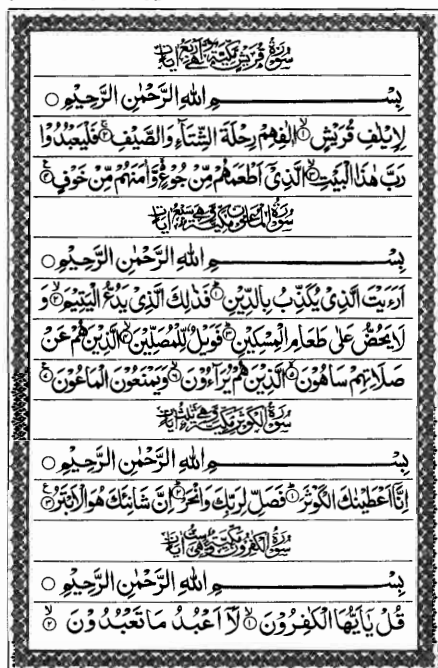 سُوْرَةُ قُرَيْشٍ مَكِّيَّةٌ وَّهِيَ اَرْبَعُ اٰيَاتٍ
بِسْمِ اللهِ الرَّحْمٰنِ الرَّحِيْمِ ○
لِاِيْلٰفِ قُرَيْشٍ ۙ۝۱ اٖلٰفِهِمْ رِحْلَةَ الشِّتَآءِ وَالصَّيْفِ ۚ۝۲ فَلْيَعْبُدُوْا
رَبَّ هٰذَا الْبَيْتِ ۙ۝۳ الَّذِيْٓ اَطْعَمَهُمْ مِّنْ جُوْعٍ وَّاٰمَنَهُمْ مِّنْ خَوْفٍ ۝۴
سُوْرَةُ الْمَاعُوْنِ مَكِّيَّةٌ وَّهِيَ سَبْعُ اٰيَاتٍ
بِسْمِ اللهِ الرَّحْمٰنِ الرَّحِيْمِ ○
اَرَءَيْتَ الَّذِيْ يُكَذِّبُ بِالدِّيْنِ ۝۱ فَذٰلِكَ الَّذِيْ يَدُعُّ الْيَتِيْمَ ۙ۝۲ وَ
لَا يَحُضُّ عَلٰى طَعَامِ الْمِسْكِيْنِ ۝۳ فَوَيْلٌ لِّلْمُصَلِّيْنَ ۙ۝۴ الَّذِيْنَ هُمْ عَنْ
صَلَاتِهِمْ سَاهُوْنَ ۙ۝۵ الَّذِيْنَ هُمْ يُرَآءُوْنَ ۙ۝۶ وَيَمْنَعُوْنَ الْمَاعُوْنَ ۝۷
سُوْرَةُ الْكَوْثَرِ مَكِّيَّةٌ وَّهِيَ ثَلٰثُ اٰيَاتٍ
بِسْمِ اللهِ الرَّحْمٰنِ الرَّحِيْمِ ○
اِنَّآ اَعْطَيْنٰكَ الْكَوْثَرَ ۝۱ فَصَلِّ لِرَبِّكَ وَانْحَرْ ۝۲ اِنَّ شَانِئَكَ هُوَ الْاَبْتَرُ ۝۳
سُوْرَةُ الْكٰفِرُوْنَ مَكِّيَّةٌ وَّهِيَ سِتُّ اٰيَاتٍ
بِسْمِ اللهِ الرَّحْمٰنِ الرَّحِيْمِ ○
قُلْ يٰٓاَيُّهَا الْكٰفِرُوْنَ ۙ۝۱ لَآ اَعْبُدُ مَا تَعْبُدُوْنَ ۙ۝۲